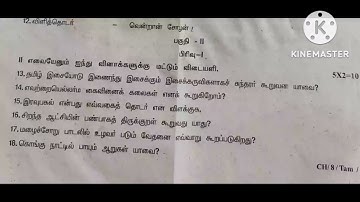 12.விளித்தொடர் - வென்றான் சோழன்!
பகுதி - II
பிரிவு-I
II எவையேனும் ஐந்து வினாக்களுக்கு மட்டும் விடையளி. 5X2=10
13. தமிழ் இசையோடு இணைந்து இசைக்கும் இசைக்கருவிகளாகச் சுந்தரர் கூறுவன யாவை?
14. எவற்றையெல்லாம் கைவினைக் கலைகள் எனக் கூறுகிறோம்?
15. இரவுபகல் என்பது எவ்வகைத் தொடர் என விளக்குக.
16. சிறந்த ஆட்சியின் பண்பாகத் திருக்குறள் கூறுவது யாது?
17. மழைச்சோறு பாடலில் உழவர் படும் வேதனை எவ்வாறு கூறப்படுகிறது?
18. கொங்கு நாட்டில் பாயும் ஆறுகள் யாவை?
CH/8/Tam/
KINEMASTER